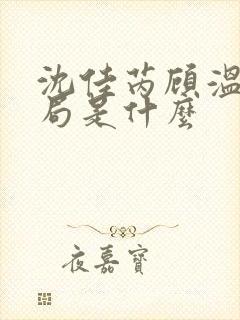 沈佳芮顾温
局是什麼
夜嘉寶